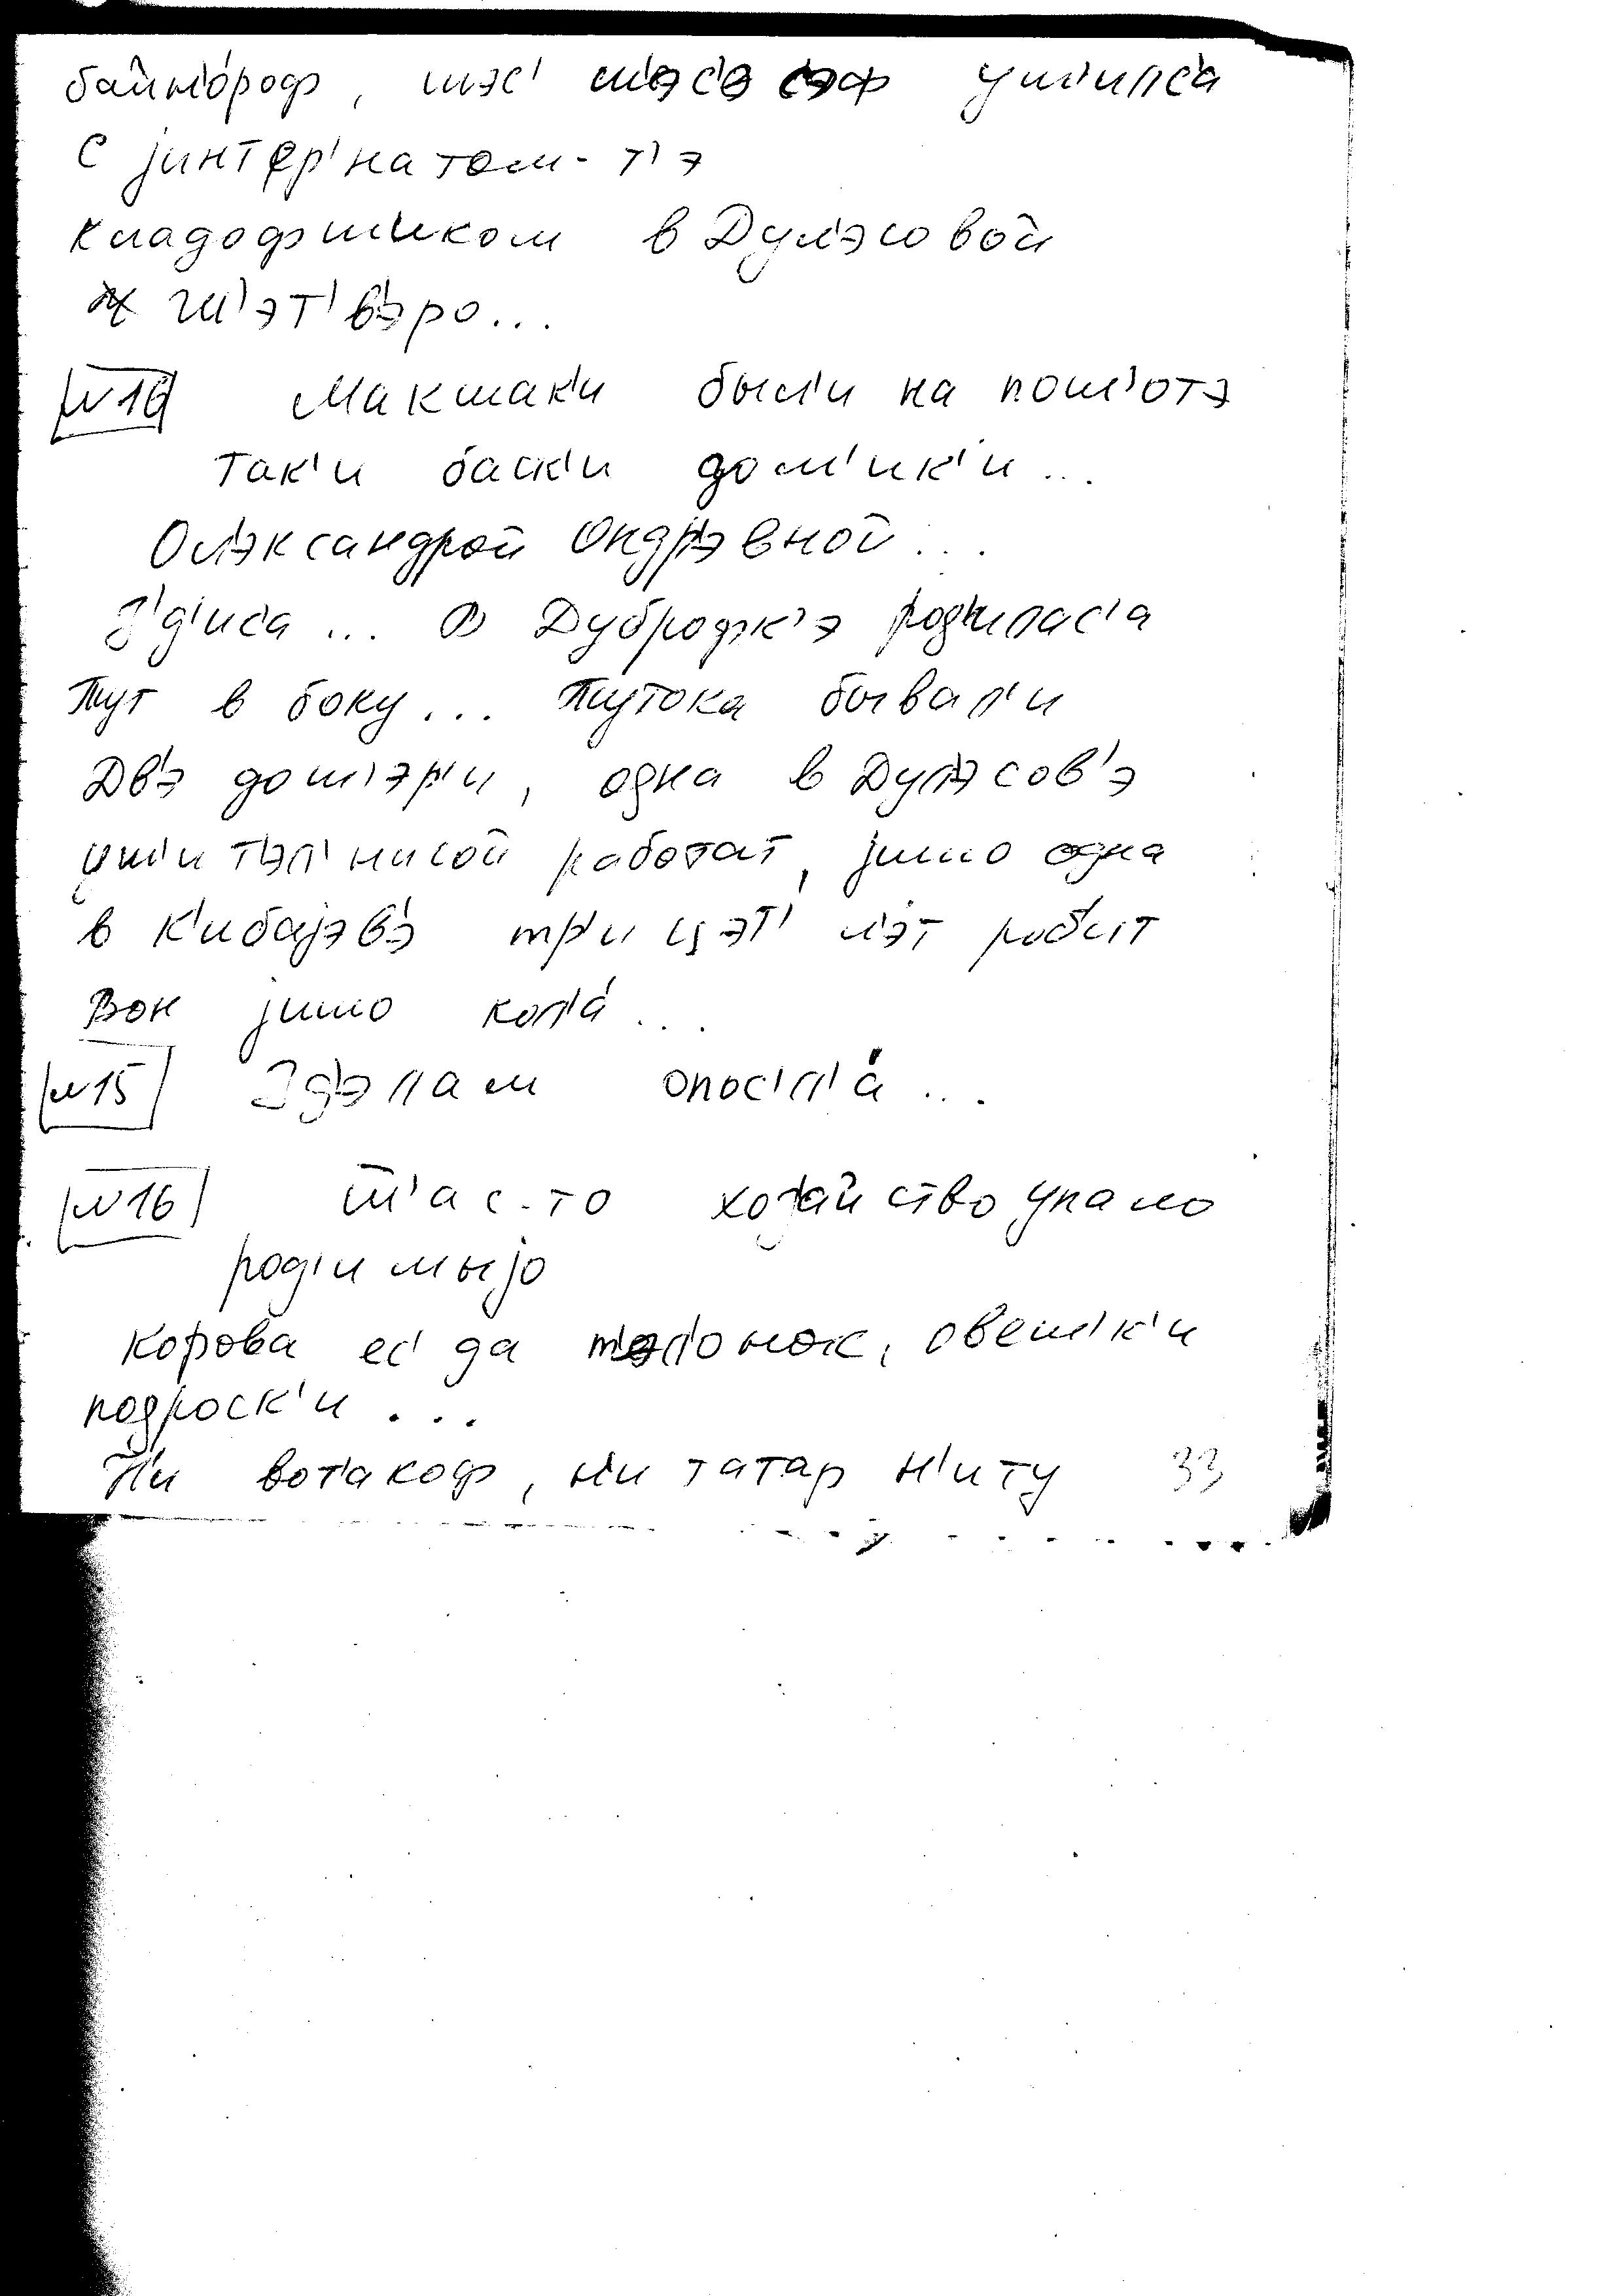 байн'ороф, шэс' м'эс'э сэф уш'илс'а
с јинтэр'натом-т'э
кладофш'иком в Дул'эсовой
ш'эт'в'эро...
№16 Макшак'и был'и на пош'отэ
так'и баск'и дом'ик'и...
Ол'эксандрой Ондр'эвной...
З'д'иса... В Дуброфк'э род'илас'а
Тут в боку... Тутока бывал'и
Дв'э дош'эр'и, одна в Дул'эсов'э
уш'ит'эл'нисой работат, јишо одна
в К'ибајэв'э тр'ицэт' л'эт роб'ит
Вон јишо кол'а...
№15 Зд'элам опосл'а...
№16 Ш'ас-то хоз'айство упало
род'имыјо
Корова ес' да т'эл'онок, овеш'к'и
подроск'и...
Н'и вот'акоф, н'и татар н'иту 33